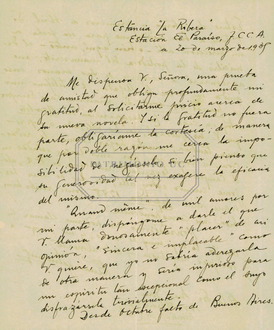 Estancia "La Ribera"
Estación El Paraíso, F.C.C.A.
a 20 de marzo de 1905
Me dispensa V., Señora, una prueba
de amistad que obliga profundamente mi
gratitud, al solicitarme juicio acerca de
su nueva novela. Y si la gratitud no fuera
parte, obligaríame la cortesía, de manera
que por doble razón me cerca la impo-
sibilidad de negárselo, si bien pienso que
su generosidad tal vez exagere la eficacia
del mismo.
"Quand même", de mil amores por
mi parte, dispóngome a darle el que
V. llama donosamente "placer" de mi
opinión, "sincera e implacable" como
V. quiere, que yo no sabría aderezarla
de otra manera y sería impropio para
un espíritu tan excepcional como el suyo
disfrazarla
Desde octubre falto de Buenos Aires.